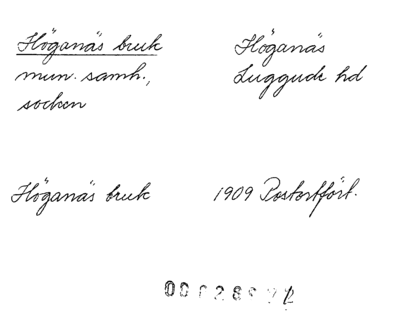 Höganäs bruk
mun. samh.,
socken
Höganäs
Luggude hd
Höganäs bruk
1909 Postortfört.